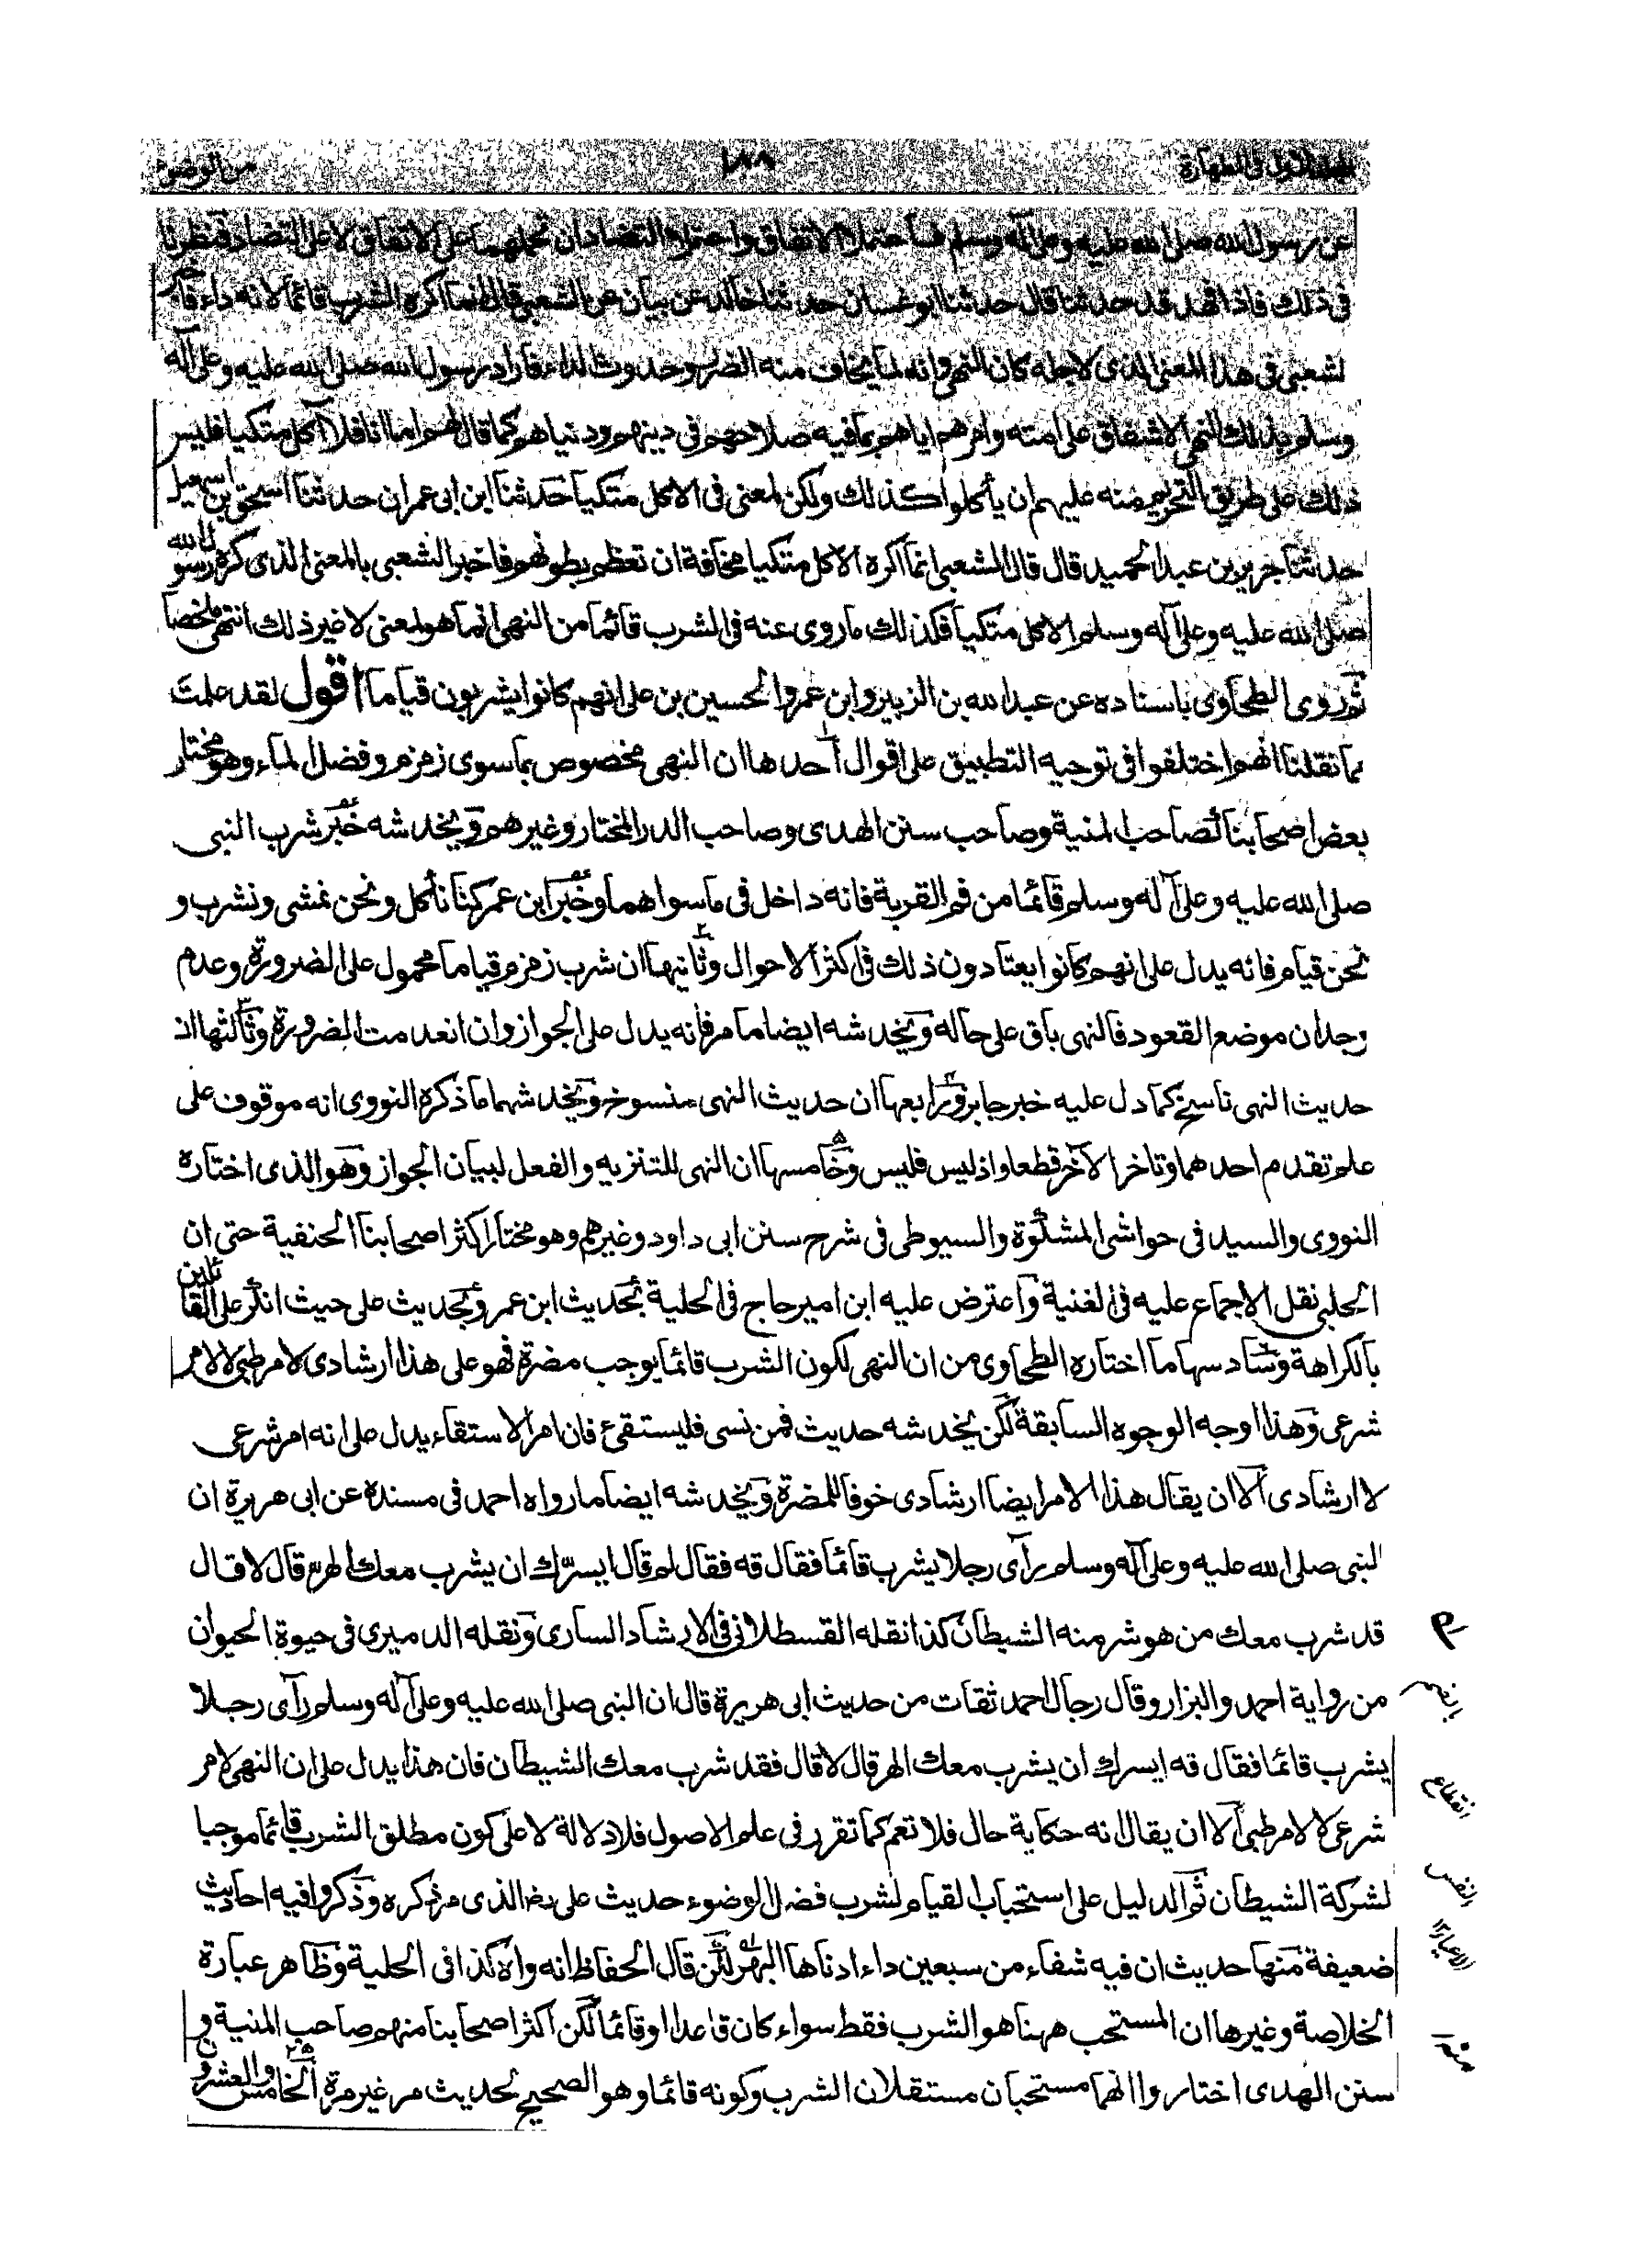 الاول فى الطهارة ١٨٨ من الوضوء
عن رسول الله صلى الله عليه وعلى آله وسلم فما احتمل الاتفاق واحتمل التضاد ان نحملهما على الاتفاق لا على التضاد فنظرنا
فى ذلك فاذا فهد قد حدثنا قال حدثنا ابو غسان حدثنا خالد عن بيان عن الشعبى قال انما اكره الشرب قائما لانه داء فاخبر
لشعبى فى هذا المعنى الذى لاجله كان النهى وانه لما يخاف منه الضرر وحدوث الداء فاراد رسول الله صلى الله عليه وعلى آله
وسلم بذلك النهى الاشفاق على امته وامرهم اياهم بما فيه صلاحهم فى دينهم ودنياهم كما قال لهم اما انا فلا آكل متكيا فليس
ذلك على طريق التحريم منه عليهم ان يأكلوا كذلك ولكن لمعنى فى الاكل متكيا حدثنا ابن ابى عمران حدثنا اسحق بن اسمعيل
حدثنا جرير بن عبد الحميد قال قال الشعبى انما اكره الاكل متكيا مخافة ان تعظم بطونهم فاخبر الشعبى بالمعنى الذى كره رسول الله
صلى الله عليه وعلى آله وسلم الاكل متكيا فكذلك ما روى عنه فى الشرب قائما من النهى انما هو لمعنى لا غير ذلك انتهى ملخصا
ثم روى الطحاوى باسناده عن عبد الله بن الزبير وابن عمر والحسين بن على انهم كانوا يشربون قياما اقول لقد علمت
مما نقلنا انهم اختلفوا فى توجيه التطبيق على اقوال احدها ان النهى مخصوص بما سوى زمزم وفضل الماء وهو مختار
بعض اصحابنا كصاحب المنية وصاحب سنن الهدى وصاحب الدر المختار وغيرهم ويخدشه خبر شرب النبى
صلى الله عليه وعلى آله وسلم قائما من فم القربة فانه داخل فى ما سواهما وخبر ابن عمر كنا نأكل ونحن نمشى ونشرب و
نحن قيام فانه يدل على انهم كانوا يعتادون ذلك فى اكثر الاحوال وثانيها ان شرب زمزم قياما محمول على الضرورة وعدم
وجدان موضع القعود فالنهى باق على حاله ويخدشه ايضا ما مر فانه يدل على الجواز وان انعدمت الضرورة وثالثها ان
حديث النهى ناسخ كما دل عليه خبر جابر ورابعها ان حديث النهى منسوخ ويخدشهما ما ذكره النووى انه موقوف على
علم تقدم احدهما وتاخر الآخر قطعا واذ ليس فليس وخامسها ان النهى للتنزيه والفعل لبيان الجواز وهو الذى اختاره
النووى والسيد فى حواشى المشكوة والسيوطى فى شرح سنن ابى داود وغيرهم وهو مختار اكثر اصحابنا الحنفية حتى ان
الحلبى نقل الاجماع عليه فى الغنية واعترض عليه ابن امير حاج فى الحلية بحديث ابن عمر وبحديث على حيث انكر على القائلين
بالكراهة وسادسها ما اختاره الطحاوى من ان النهى لكون الشرب قائما يوجب مضرة فهو على هذا ارشادى لامر طبى لا لامر
شرعى وهذا اوجه الوجوه السابقة لكن يخدشه حديث فمن نسى فليستقئ فان امر الاستقاء يدل على انه امر شرعى
لا ارشادى الا ان يقال هذا الامر ايضا ارشادى خوفا للمضرة ويخدشه ايضا ما رواه احمد فى مسنده عن ابى هريرة ان
النبى صلى الله عليه وعلى آله وسلم رآى رجلا يشرب قائما فقال قه فقال لم قال ايسرّك ان يشرب معك الهر قال لا قال
قد شرب معك من هو شر منه الشيطان كذا نقله القسطلانى فى الارشاد السارى ونقله الدميرى فى حيوة الحيوان
من رواية احمد والبزار وقال رجال احمد ثقات من حديث ابى هريرة قال ان النبى صلى الله عليه وعلى آله وسلم رآى رجلا
يشرب قائما فقال قه ايسرك ان يشرب معك الهر قال لا قال فقد شرب معك الشيطان فان هذا يدل على ان النهى لامر
شرعى لا لامر طبى الا ان يقال انه حكاية حال فلا تعم كما تقرر فى علم الاصول فلا دلالة لا على كون مطلق الشرب قائما موجبا
لشركة الشيطان ثم الدليل على استحباب القيام لشرب فضل الوضوء حديث على رض الذى مر ذكره وذكروا فيه احاديث
ضعيفة منها حديث ان فيه شفاء من سبعين داء ادناها البهر لكن قال الحفاظ انه واه كذا فى الحلية وظاهر عبارة
الخلاصة وغيرها ان المستحب ههنا هو الشرب فقط سواء كان قاعدا او قائما لكن اكثر اصحابنا منهم صاحب المنية و
سنن الهدى اختاروا انهما مستحبان مستقلان الشرب وكونه قائما وهو الصحيح لحديث مر غير مرة الخامس والعشرون